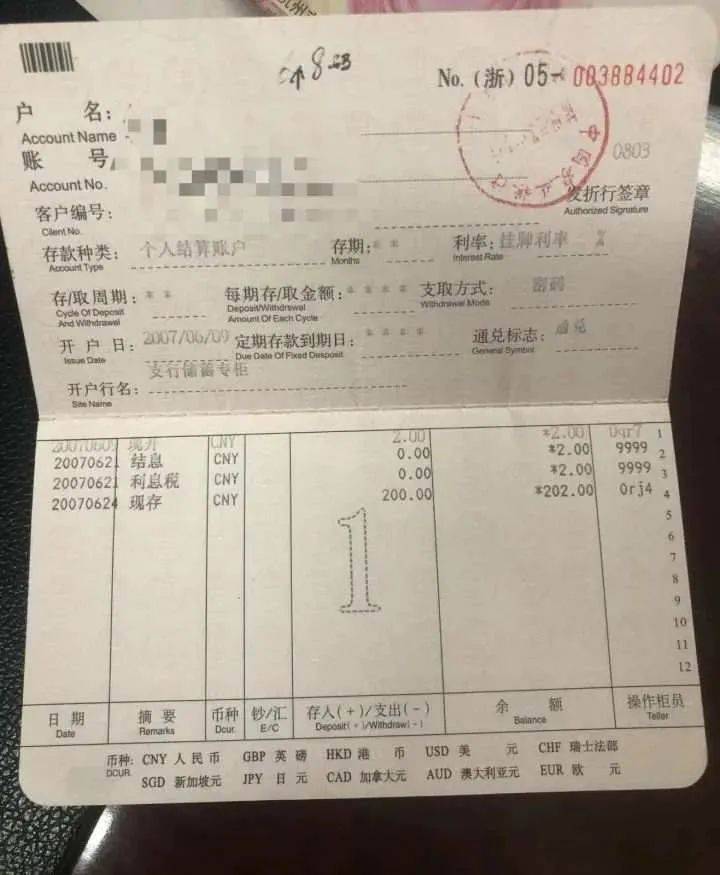 No.(浙) 05- 003884402
户 名:
Account Name
账 号
Account No.
0803
客户编号:
Client No.
发折行签章
Authorized Signature
存款种类: 个人结算账户 存期: ** 利率: 挂牌利率 %
Account Type Months Interest Rate
存/取周期: ** 每期存/取金额: **** 支取方式: 密码
Cycle Of Deposit And Withdrawal Deposit/Withdrawal Amount Of Each Cycle Withdrawal Mode
开 户 日: 2007/06/09 定期存款到期日: **** 通兑标志: 通兑
Issue Date Due Date Of Fixed Desposit General Symbol
开户行名: 支行储蓄专柜
Site Name
20070609 现开 CNY 2.00 *2.00 0qr7 1
20070621 结息 CNY 0.00 *2.00 9999 2
20070621 利息税 CNY 0.00 *2.00 9999 3
20070624 现存 CNY 200.00 *202.00 0rj4 4
5
6
7
8
9
10
11
12
1
日 期 摘 要 币种 钞/汇 存入(+)/支出(-) 余 额 操作柜员
Date Remarks Dcur. E/C Deposit(+)/Withdraw(-) Balance Teller
币种: CNY 人 民 币 GBP 英 磅 HKD 港 币 USD 美 元 CHF 瑞士法郎
DCUR. SGD 新加坡元 JPY 日 元 CAD 加拿大元 AUD 澳大利亚元 EUR 欧 元